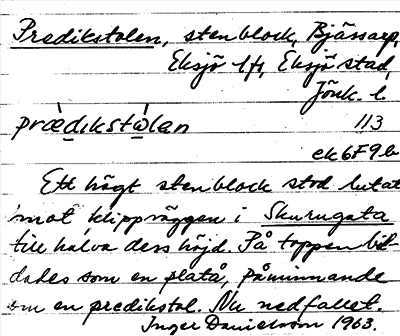 Predikstolen, stenblock, Bjässarp,
Eksjö lfs, Eksjö stad,
Jönk. l.
prædıkstωlan 113
ek 6F9b
Ett högt stenblock stod lutat
mot klippväggen i Skurugata
till halva dess höjd. På toppen bil-
dades som en platå, påminnande
om en predikstol. Nu nedfallet.
Inger Danielsson 1963.